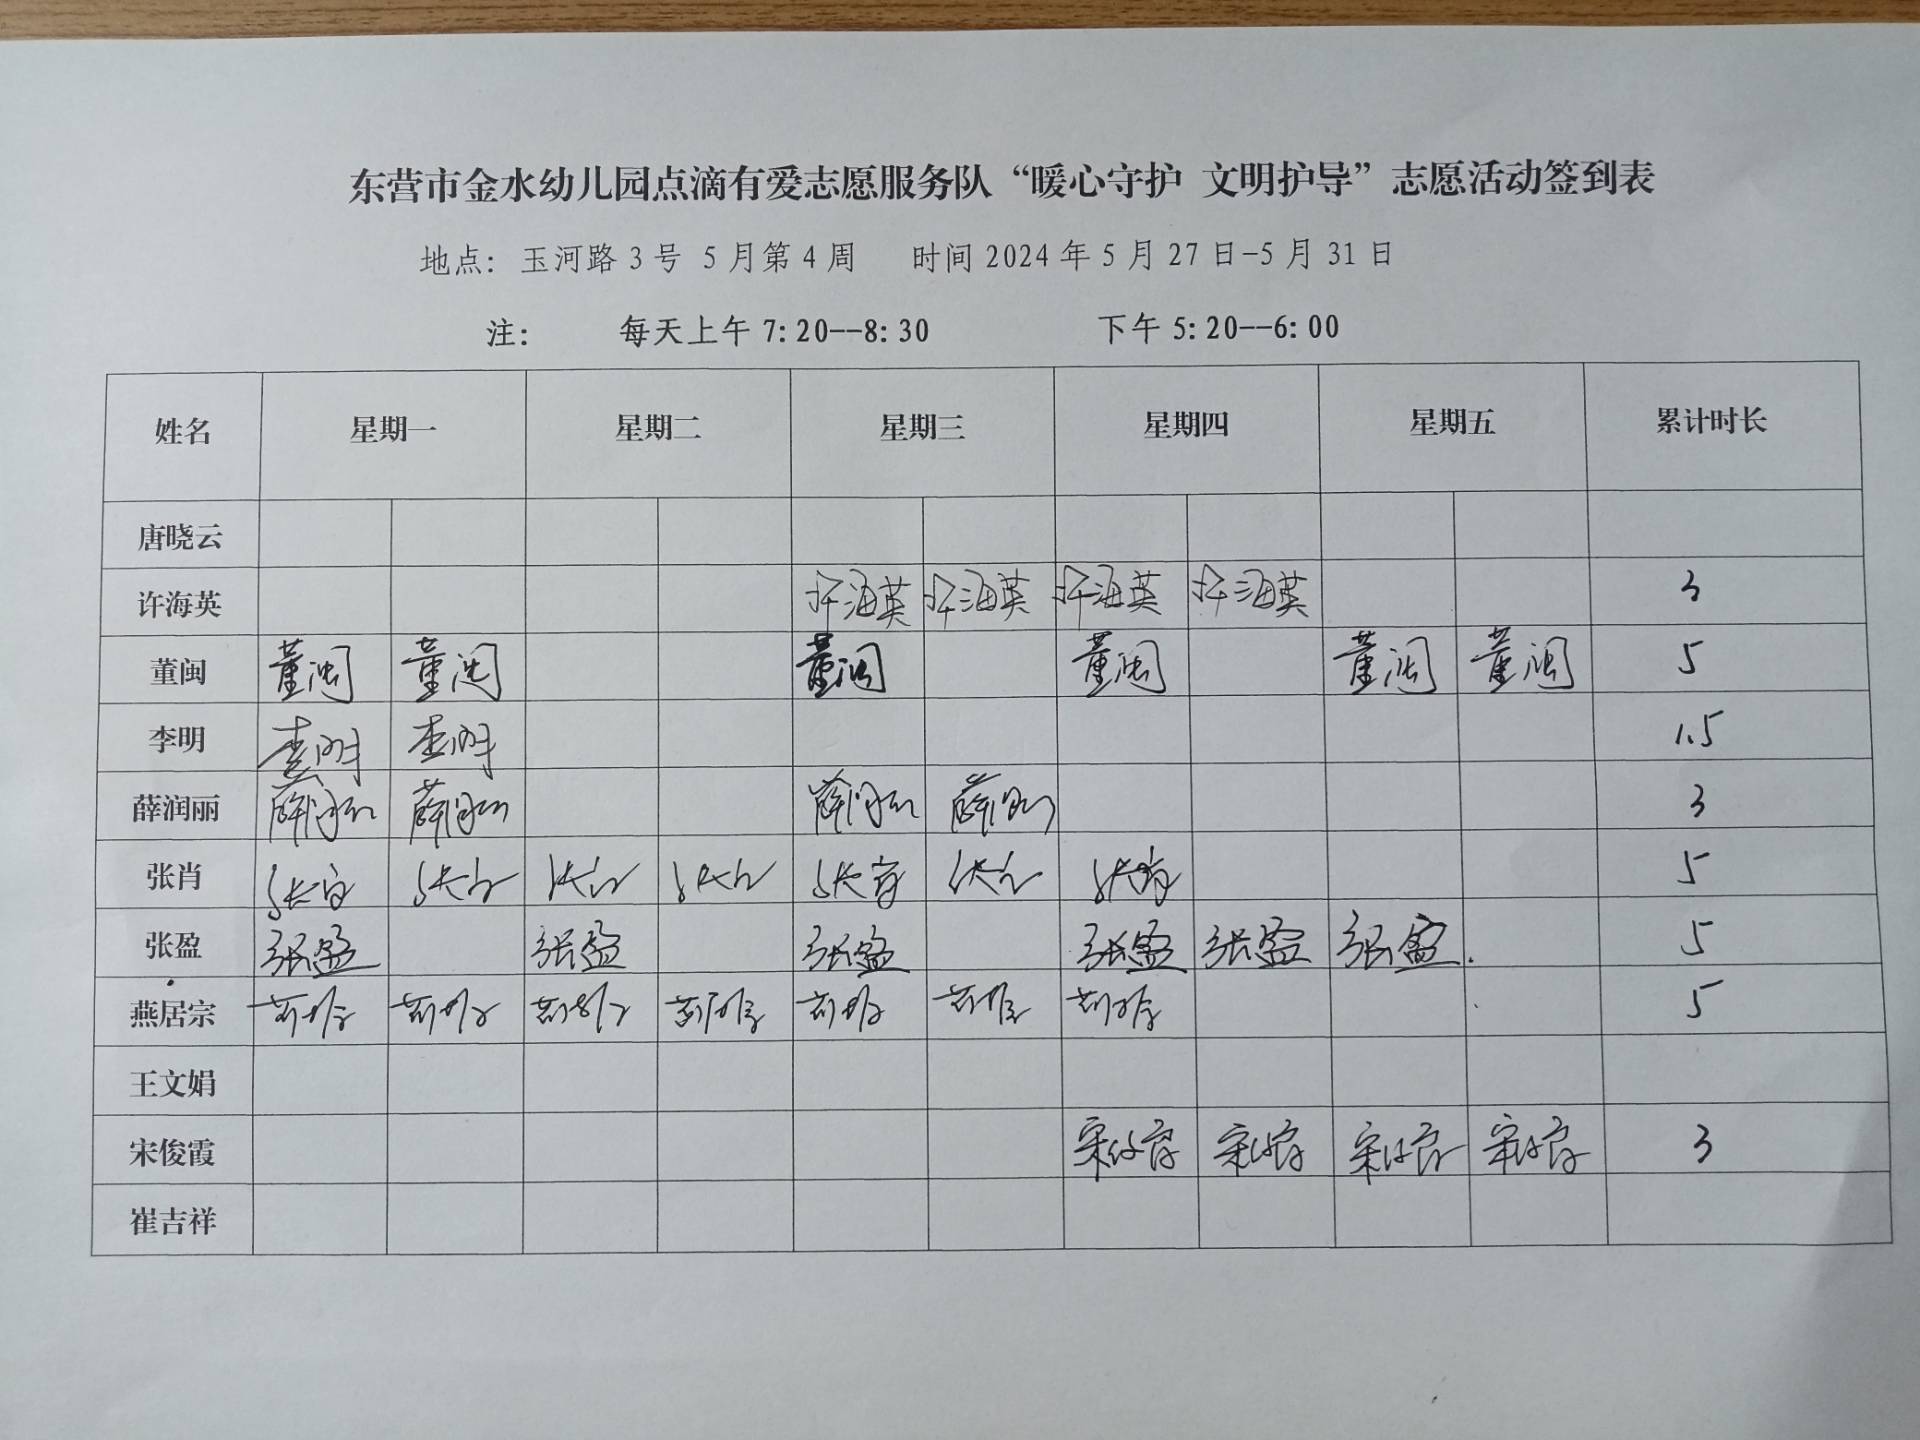 东营市金水幼儿园点滴有爱志愿服务队“暖心守护 文明护导”志愿活动签到表
地点：玉河路3号 5月第4周 时间2024年5月27日-5月31日
注： 每天上午7:20--8:30 下午5:20--6:00
姓名 星期一 星期二 星期三 星期四 星期五 累计时长
唐晓云
许海英 许海英 许海英 许海英 许海英 3
董闽 董闽 董闽 董闽 董闽 董闽 董闽 5
李明 李明 李明 1.5
薛润丽 薛润丽 薛润丽 薛润丽 薛润丽 3
张肖 张肖 张肖 张肖 张肖 张肖 张肖 张肖 5
张盈 张盈 张盈 张盈 张盈 张盈 张盈 5
燕居宗 燕居宗 燕居宗 燕居宗 燕居宗 燕居宗 燕居宗 燕居宗 5
王文娟
宋俊霞 宋俊霞 宋俊霞 宋俊霞 宋俊霞 3
崔吉祥